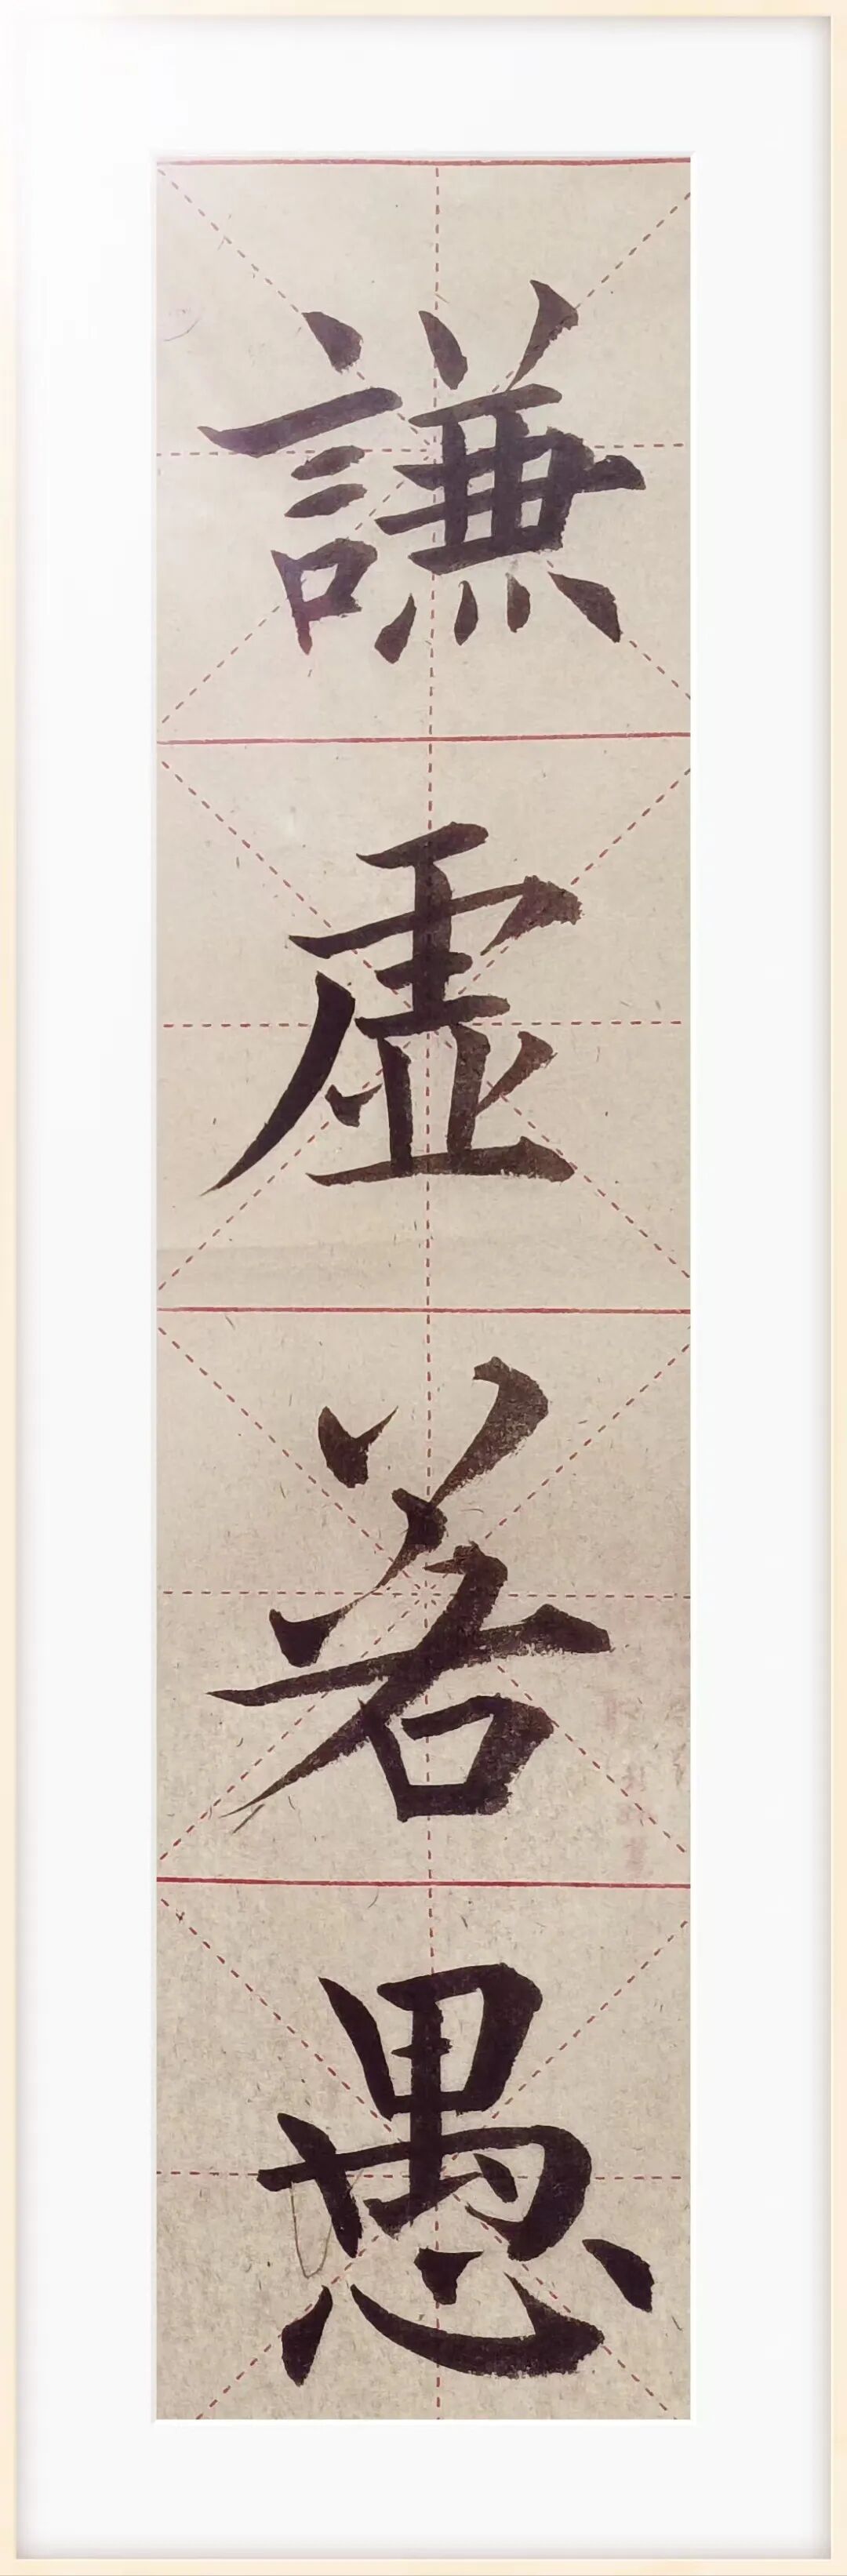 謙虛若愚